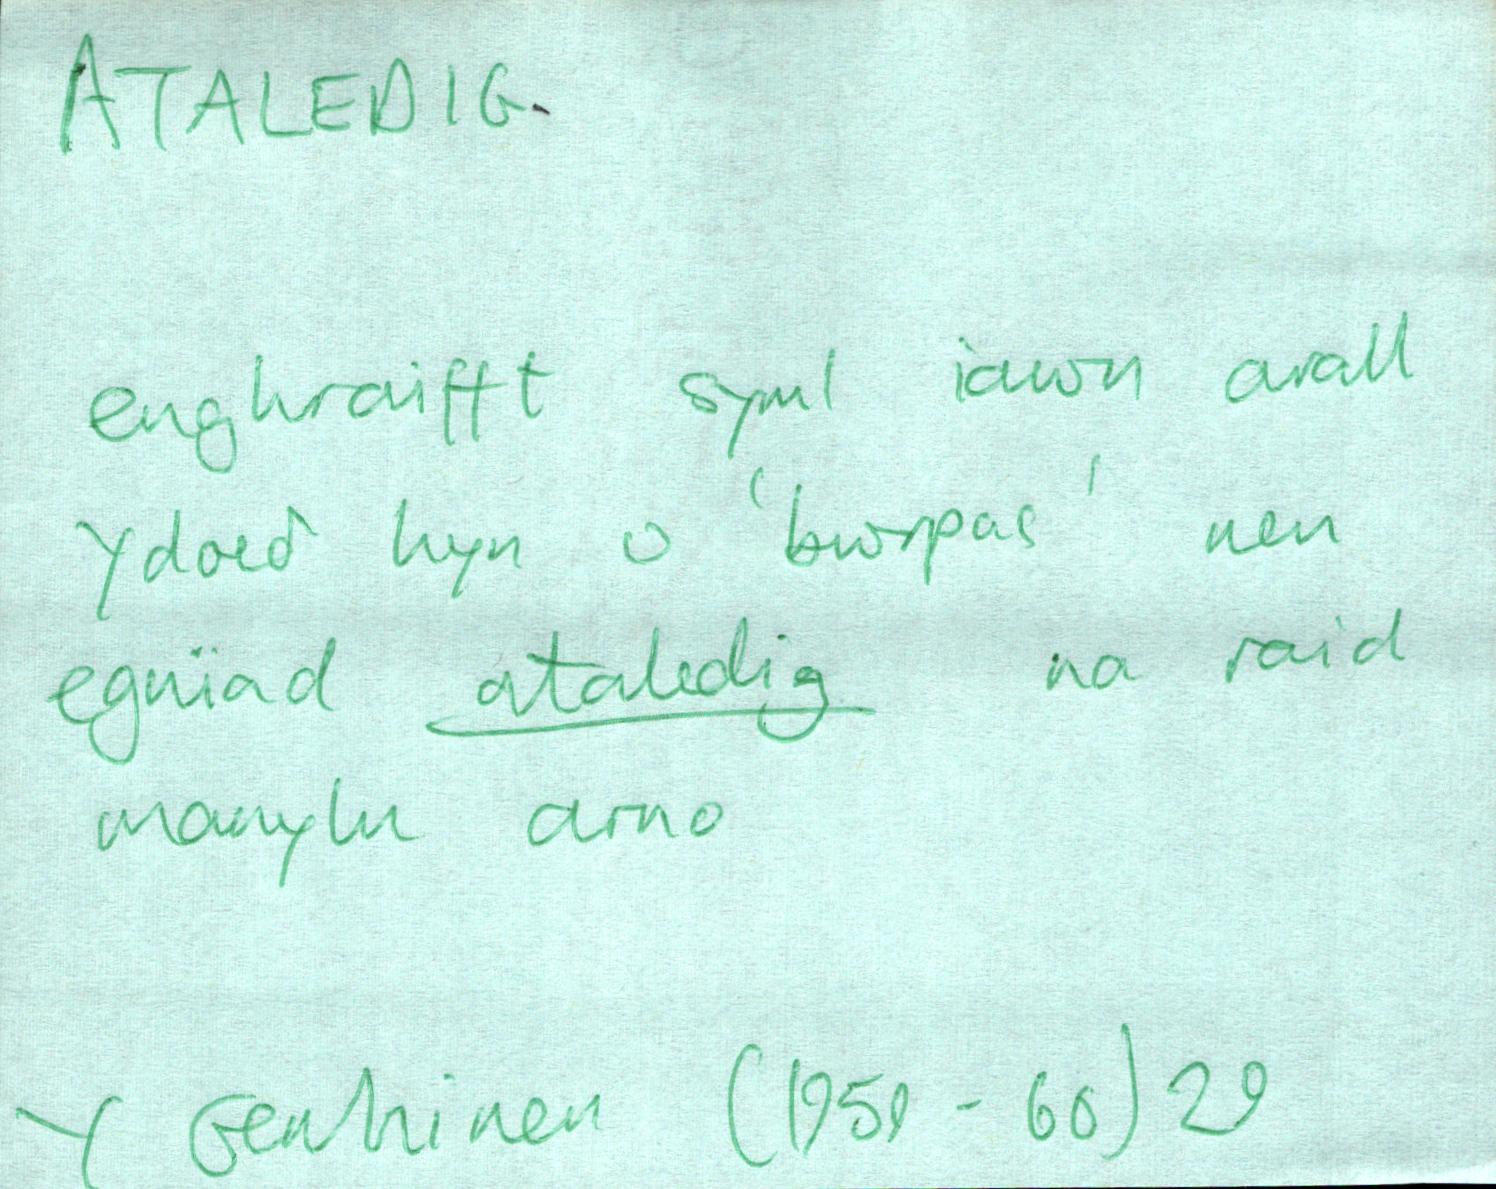 ATALEDIG.
enghraifft syml iawn arall
ydoeđ hyn o 'bwrpas' neu
egnïad ataledig na raid
manylu arno
Y Genhinen (1959-60) 29